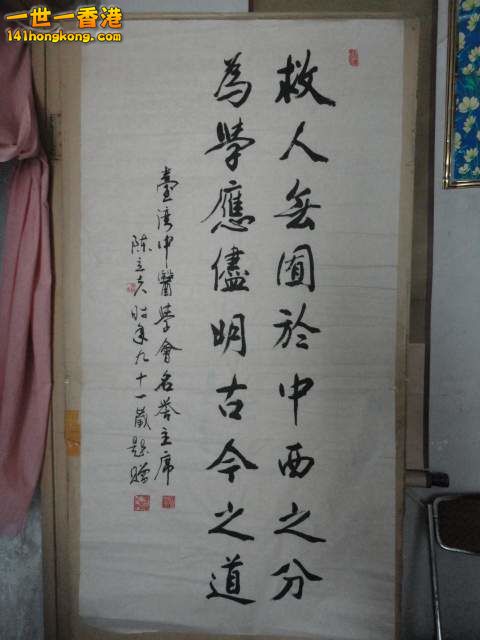 一世一香港
141hongkong.com
救人無囿於中西之分
為學應儘明古今之道
臺灣中醫學會名譽主席
陳立夫時年九十一歲題贈